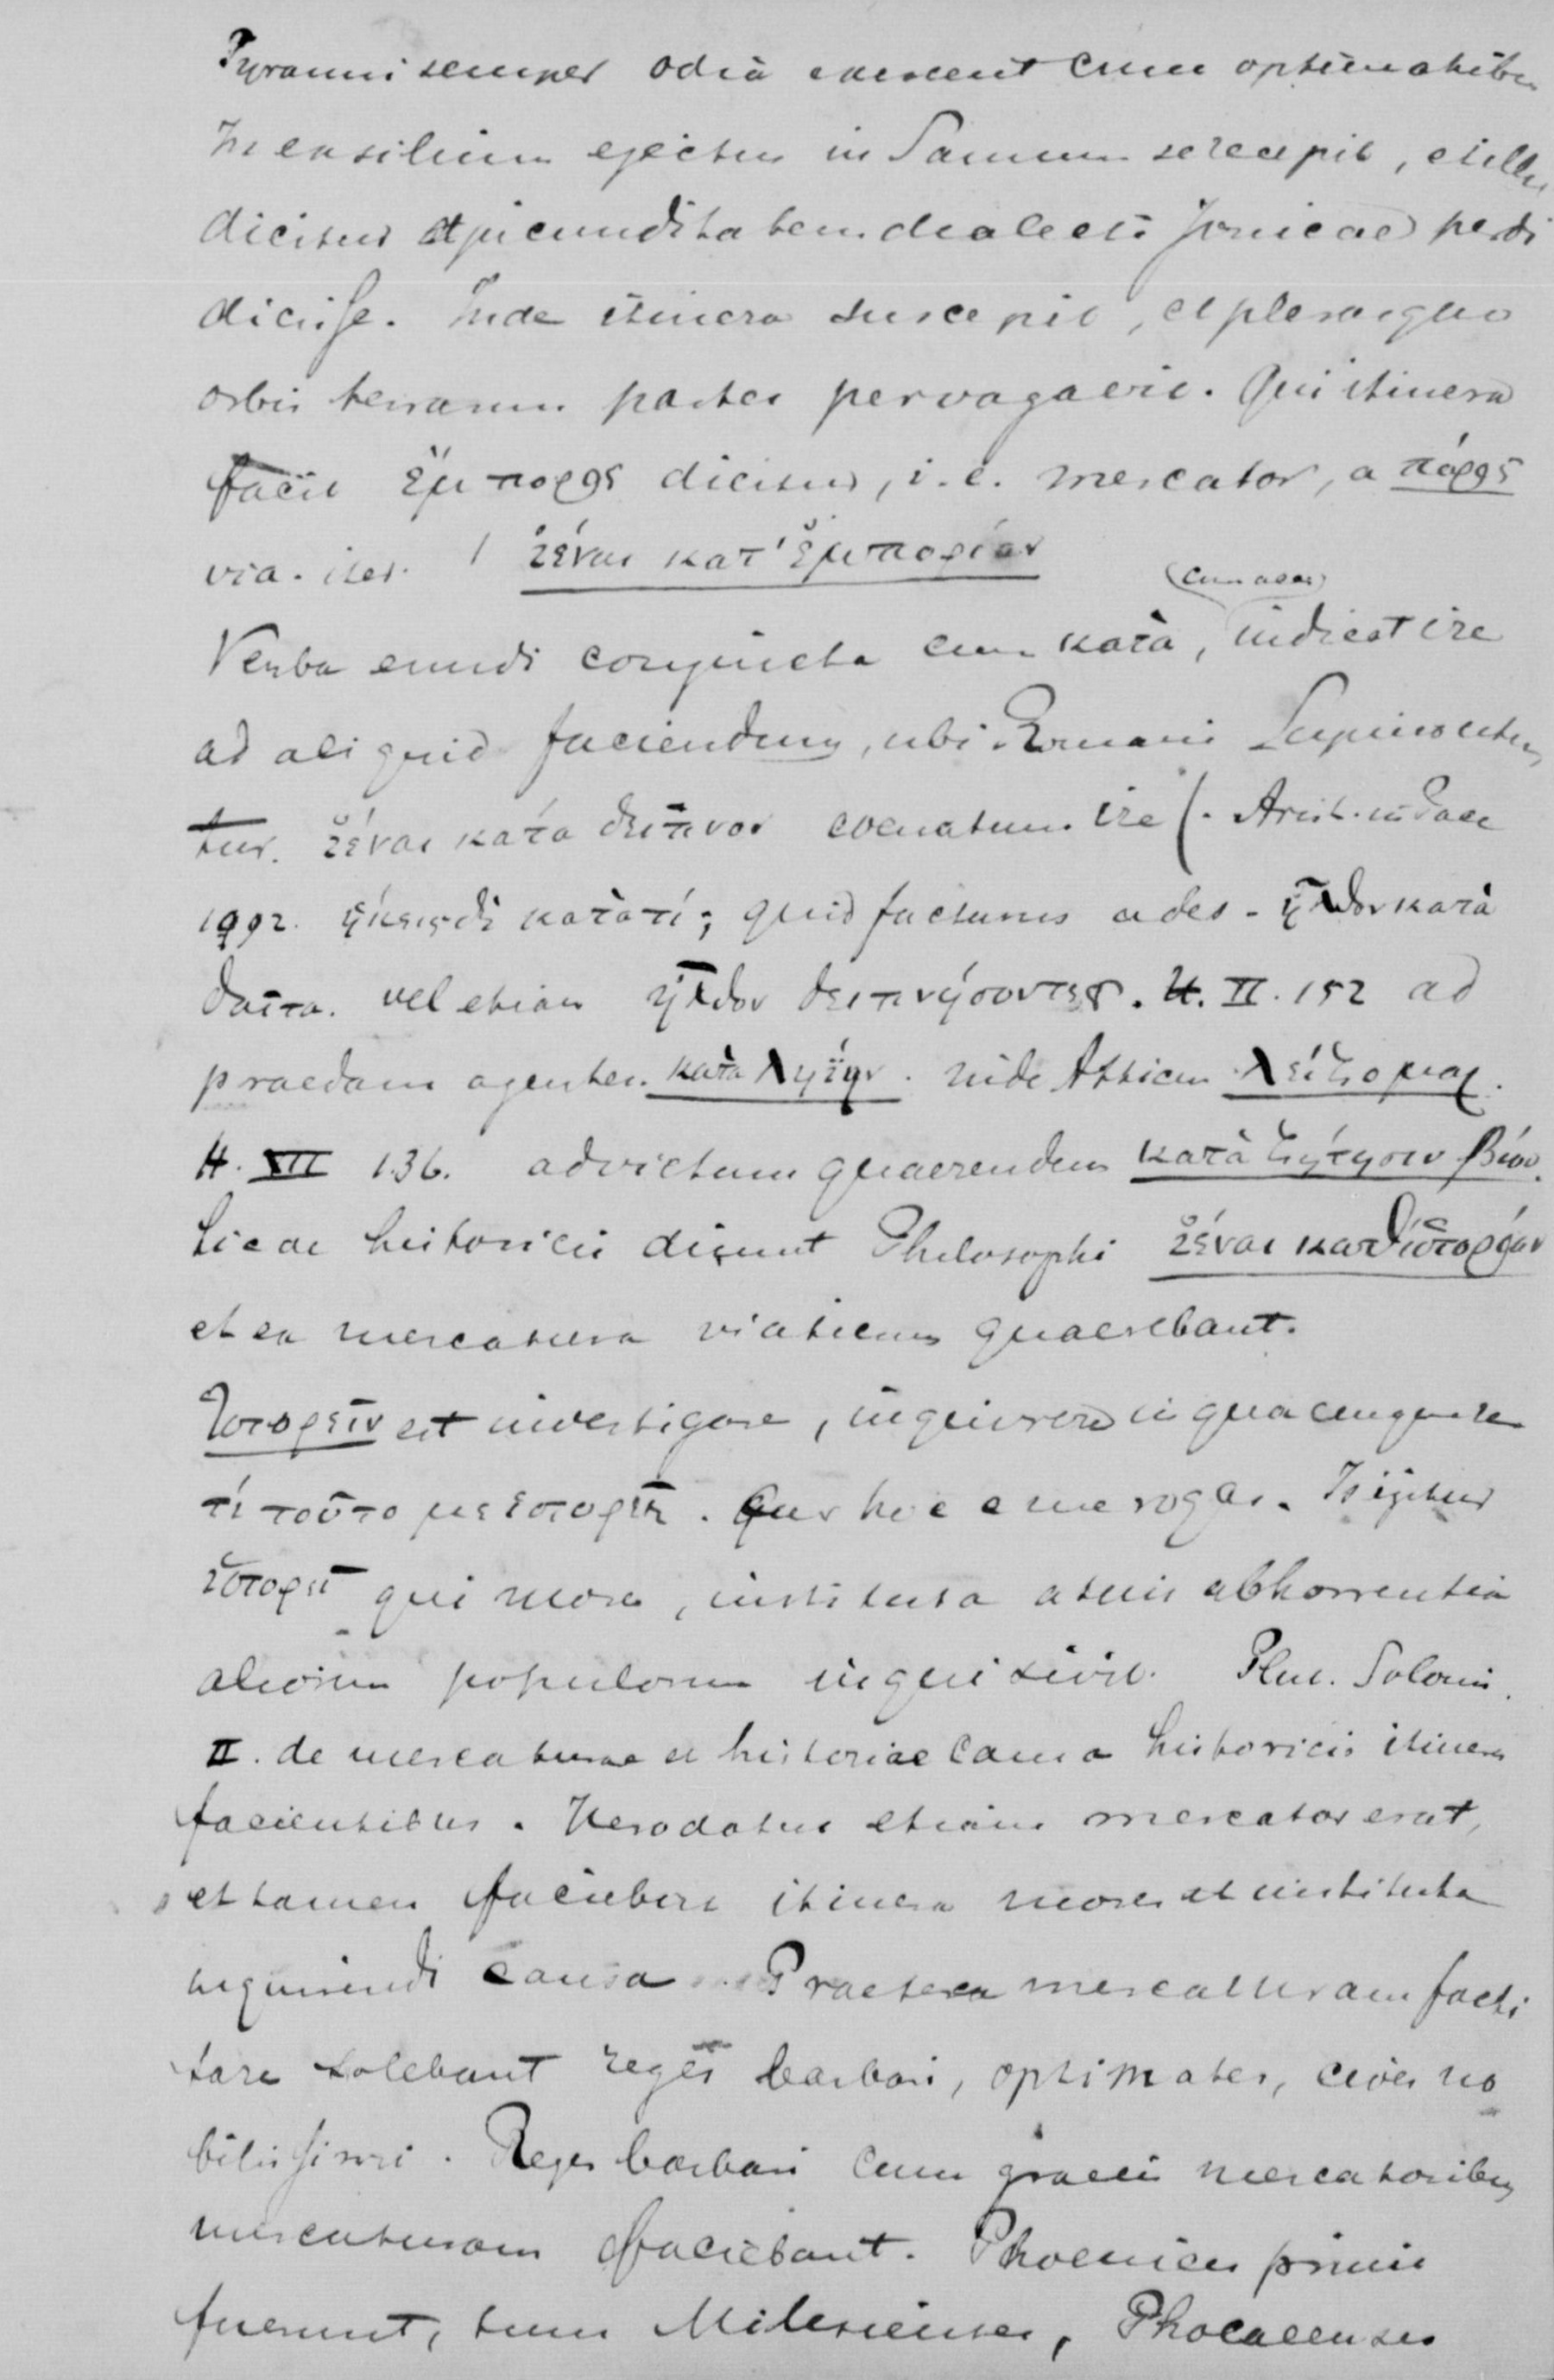 Tyranni semper odia exercent cum optimatibus
In exsilium ejectus in Samum se recepit, et illic
dicitur et jucunditatem dialecti Jonicae perdi
dicisse. Inde itinera suscepit, et plerasque
orbis terrarum partes pervagavit. Qui itinera
facit ἔμπορος dicitur, i.e. mercator, a πόρος
via. iter. ἰέναι κατ' ἐμπορίαν
(cum acc.)
Verba eundi conjuncta cum κατὰ, indicat ire
ad aliquid faciendum, ubi Romani Supino utun
tur. ἰέναι κατὰ δεῖπνον coenatum ire (. Arist. in Pace
192. ἥκεις δὲ κατὰ τί; quid facturus ades - ἦλθον κατὰ
δαῖτα. vel etiam ἦλθον δειπνήσοντες. H. II. 152 ad
praedam agentes. κατὰ ληίην. inde Atticum λείζομαι.
H. VII 136. ad victum quaerendum κατὰ ζήτησιν βίου.
Sic de historicis dicunt Philosophi ἰέναι καθ' ἱστορίαν
et ea mercatura viaticum quaerebant.
Ἱστορεῖν est investigare, inquirere in quacunque re
τί τοῦτο με ἱστορεῖς. Cur hoc e me rogas. Is igitur
ἱστορεῖ qui mores, instituta a suis abhorrentia
aliorum populorum inquisivit. Plut. Solonis.
II. de mercaturae et historiae causa historicis itinera
facientibus. Herodotus etiam mercator erat,
et tamen faciebat itinera mores et instituta
inquirendi causa. Praeterea mercaturam facti
tare solebant reges barbari, optimates, cives no
bilissimi. Reges barbari cum graecis mercatoribus
mercaturam faciebant. Phoenices primi
fuerunt, tum Milesienses, Phocaeenses